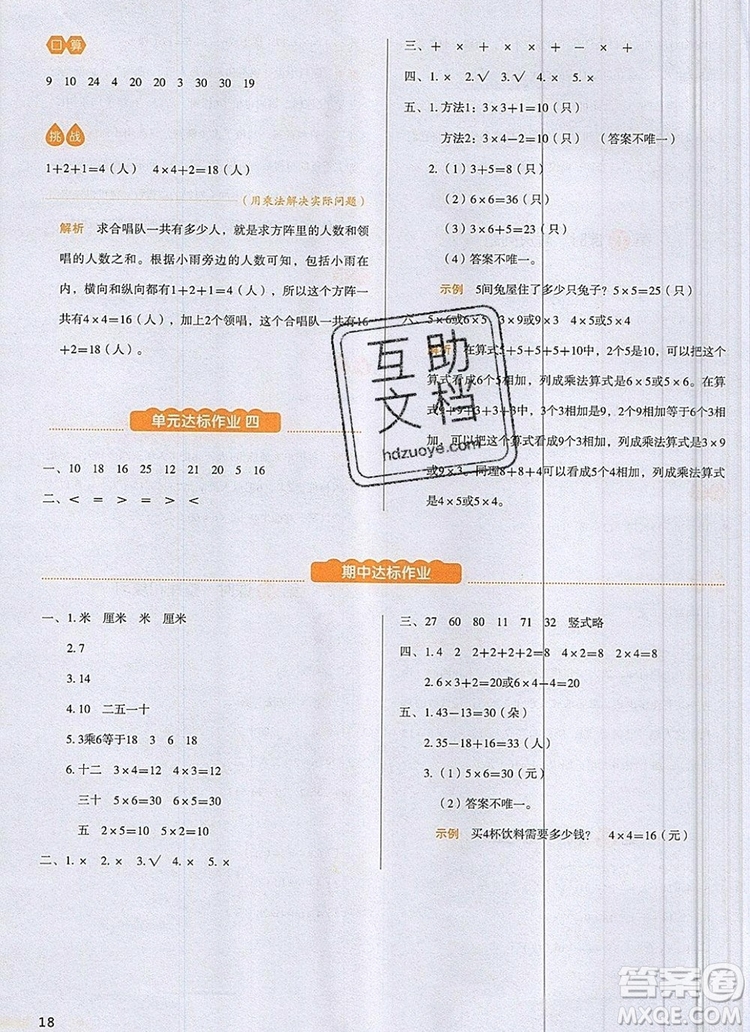 口算
9 10 24 4 20 20 3 30 30 19
挑战
1+2+1=4（人） 4×4+2=18（人）
（用乘法解决实际问题）
解析 求合唱队一共有多少人，就是求方阵里的人数和领
唱的人数之和。根据小雨旁边的人数可知，包括小雨在
内，横向和纵向都有1+2+1=4（人），所以这个方阵一
共有4×4=16（人），加上2个领唱，这个合唱队一共有16
+2=18（人）。
单元达标作业 四
一、10 18 16 25 12 21 20 5 16
二、< = > = > > < <
三、+ × + × × − × +
四、1.× 2.√ 3.√ 4.× 5.×
五、1.方法1：3×3+1=10（只）
方法2：3×4−2=10（只） （答案不唯一）
2.（1）3+5=8（只）
（2）6×6=36（只）
（3）6+3+4=13（只）
（4）答案不唯一。
示例 5间兔屋住了多少只兔子？ 5×5=25（只）
六、5×6或6×5 3×9或9×3 4×5或5×4
解析 在算式5+5+5+5+10中，2个5是10，可以把这个
算式看成6个5相加，列成乘法算式是6×5或5×6。在算
式9+9+3+3+3中，可以把这个算式看成3个9相加，列成乘法算式是3×9或
9×3。同理8+4+8可以看成5个4相加，列成乘法算式是
4×5或5×4。
互助
文档
hdzuoye.com
期中达标作业
一、1.米 厘米 米 厘米
2.7
3.14
4.10 二五一十
5.3乘6等于18 3 6 18
6.十二 3×4=12 4×3=12
三十 5×6=30 6×5=30
五 2×5=10 5×2=10
二、1.× 2.× 3.√ 4.× 5.×
三、27 60 80 11 71 32 竖式略
四、1.4 2 2+2+2+2=8 4×2=8 2×4=8
2.6×3+2=20或6×4−4=20
五、1.43−13=30（朵）
2.35−18+16=33（人）
3.（1）5×6=30（元）
（2）答案不唯一。
示例 买4杯饮料需要多少钱？ 4×4=16（元）
18
答案圈
MXQE.COM